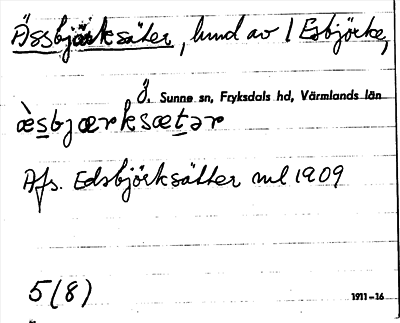 Ässbjörksäter, hmd av 1 Esbjörke,
Ö. Sunne sn, Fryksdals hd, Värmlands län
æ̀sbjærksætər
Afs. Edsbjörksätter ml 1909
5(8)
1911–16